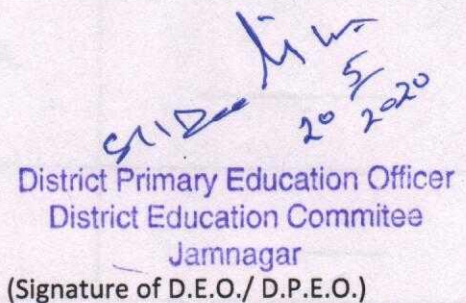 20/5/2020
District Primary Education Officer
District Education Commitee
Jamnagar
(Signature of D.E.O./ D.P.E.O.)